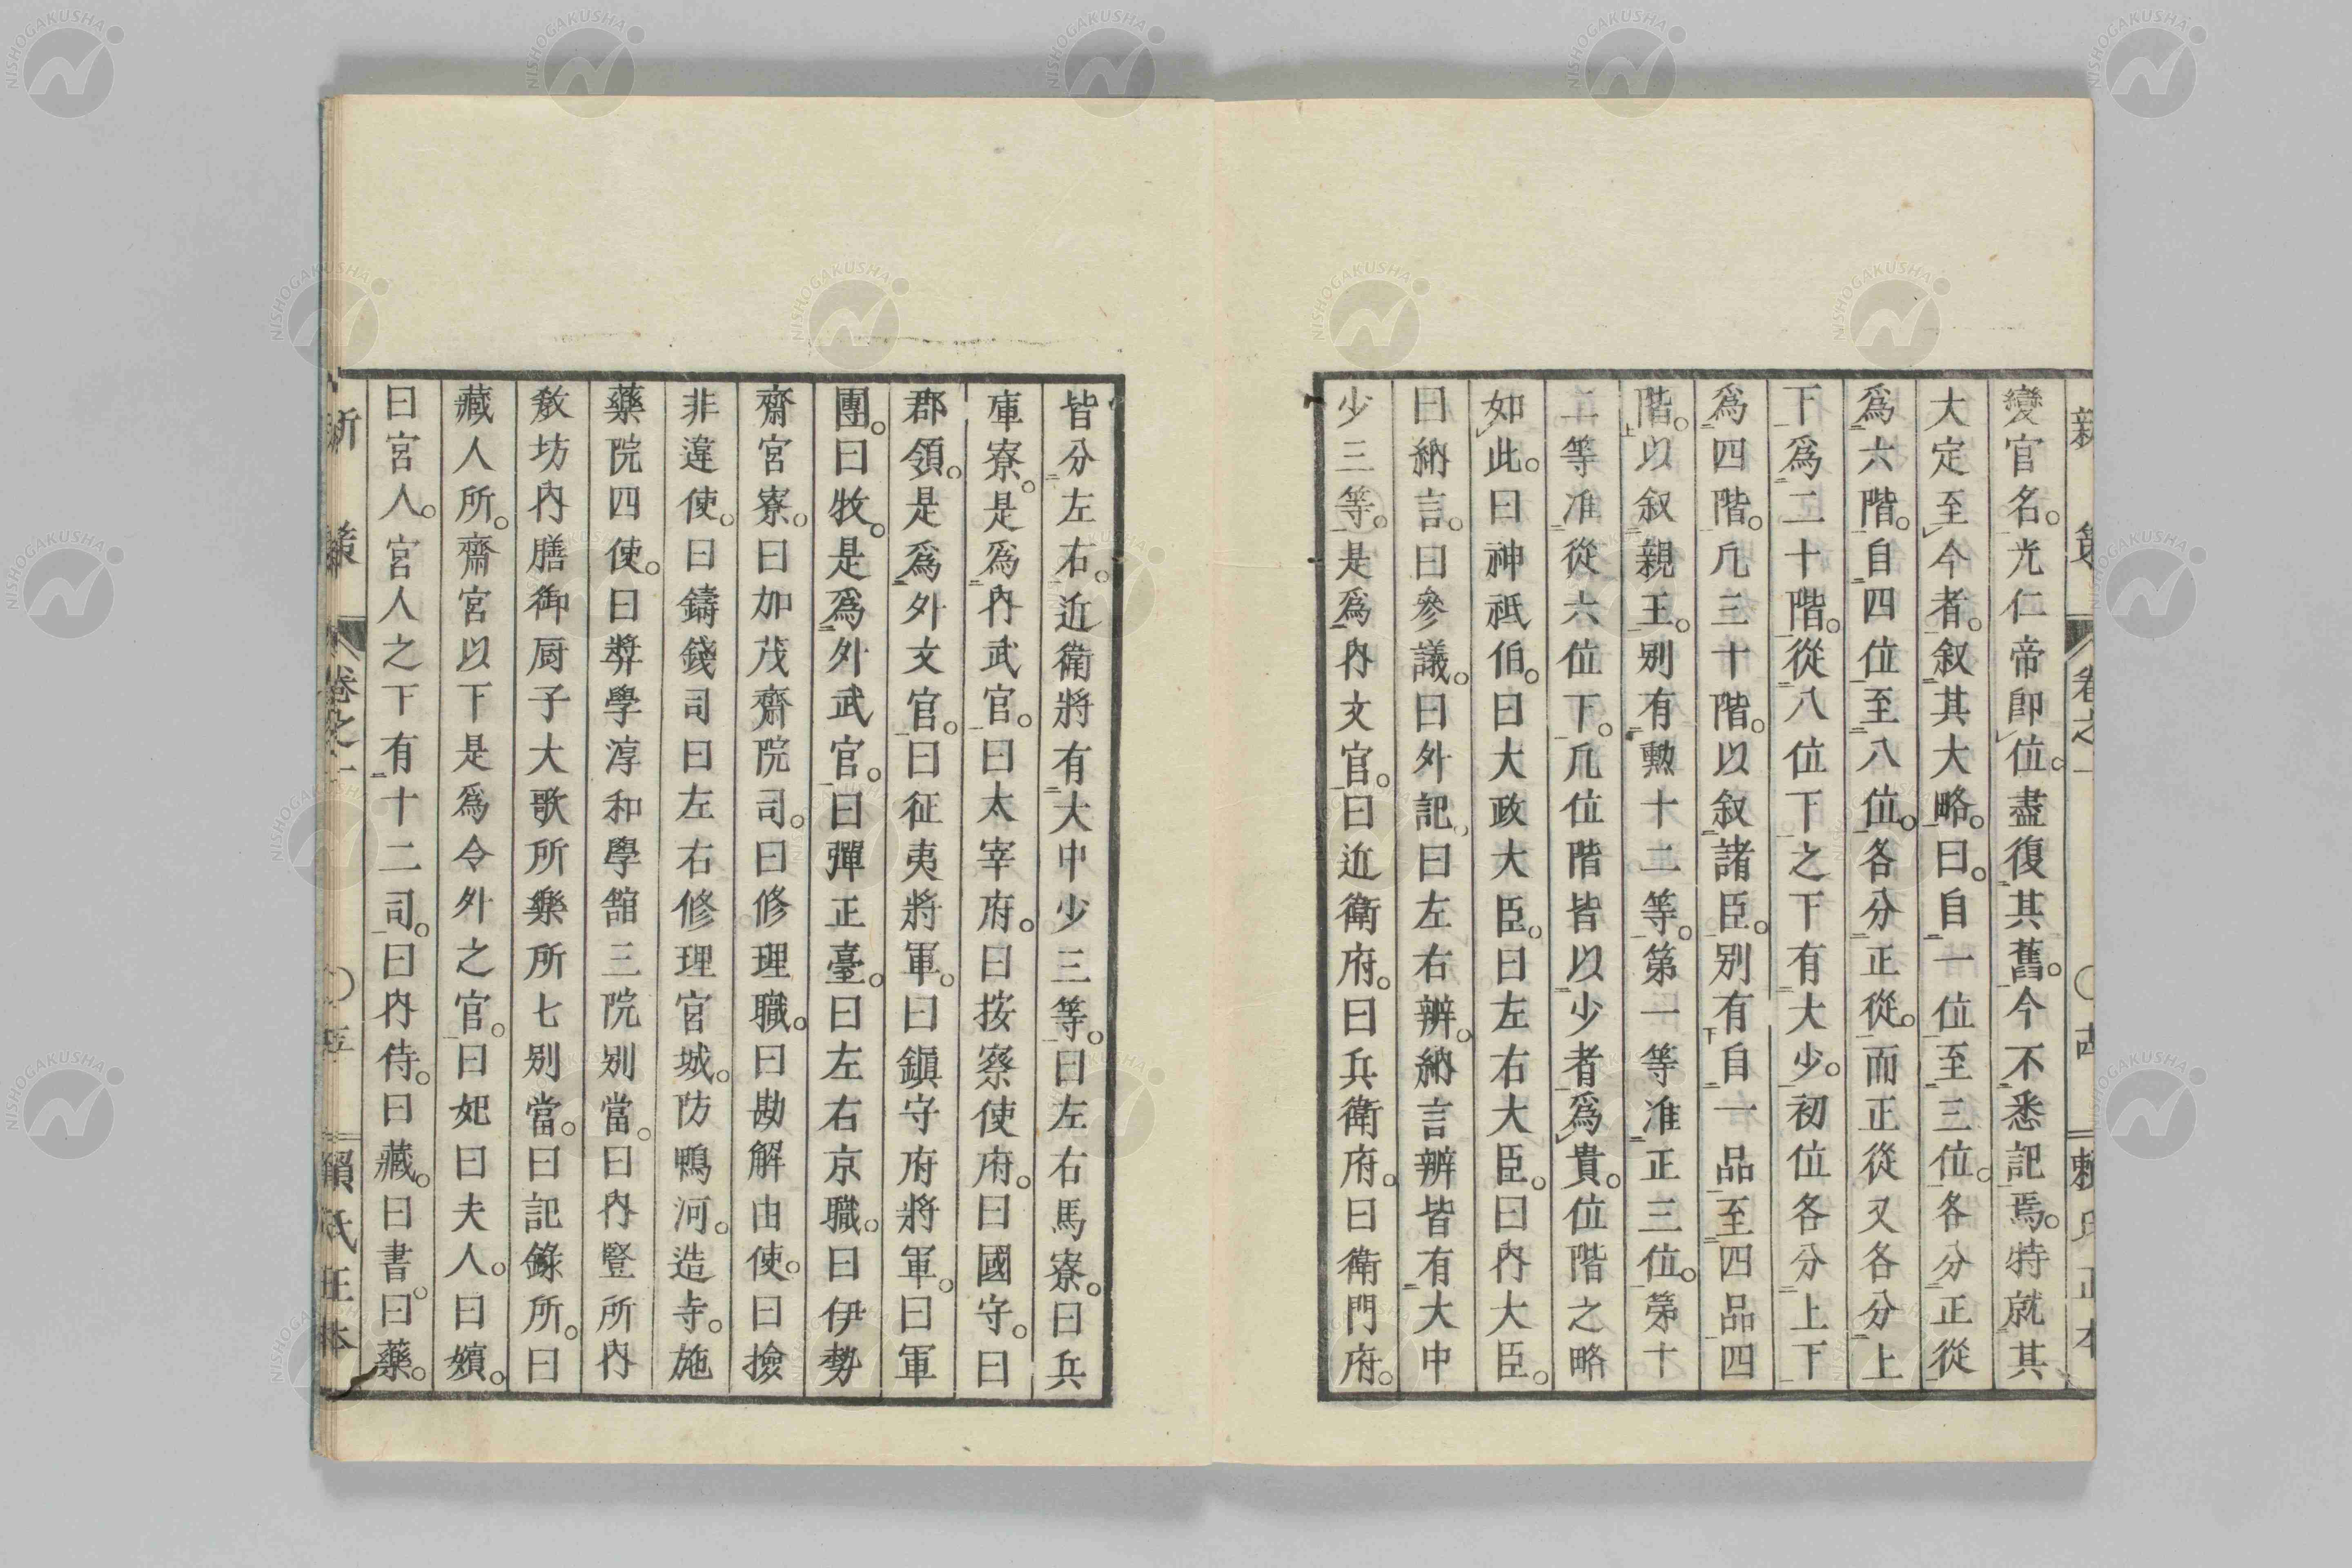 變官名。光仁帝卽位。盡復其舊。今不悉記焉。特就其
大定至今者。叙其大略。曰。自一位至三位。各分正從
爲六階。自四位至八位。各分正從。而正從又各分上
下爲二十階。從八位下之下有大少。初位各分上下
爲四階。凡三十階。以叙諸臣。別有自一品至四品四
階。以叙親王。別有勳十二等。第一等准正三位。第十
二等准從六位下。凡位階皆以少者爲貴。位階之略
如此。曰神祇伯。曰大政大臣。曰左右大臣。曰內大臣。
曰納言。曰參議。曰外記。曰左右辨。納言辨皆有大中
少三等。是爲內文官。曰近衛府。曰兵衛府。曰衛門府。
皆分左右。近衛將有大中少三等。曰左右馬寮。曰兵
庫寮。是爲內武官。曰太宰府。曰按察使府。曰國守。曰
郡領。是爲外文官。曰征夷將軍。曰鎭守府將軍。曰軍
團。曰牧。是爲外武官。曰彈正臺。曰左右京職。曰伊勢
齋宮寮。曰加茂齋院司。曰修理職。曰勘解由使。曰撿
非違使。曰鑄錢司曰左右修理宮城。防鴨河。造寺。施
藥院四使。曰奬學淳和學館三院別當。曰內豎所內
敎坊內膳御厨子大歌所樂所七別當。曰記錄所。曰
藏人所。齋宮以下是爲令外之官。曰妃曰夫人。曰嬪。
曰宮人。宮人之下有十二司。曰內侍。曰藏。曰書。曰藥。
新策 卷之一 〇五 賴氏正本